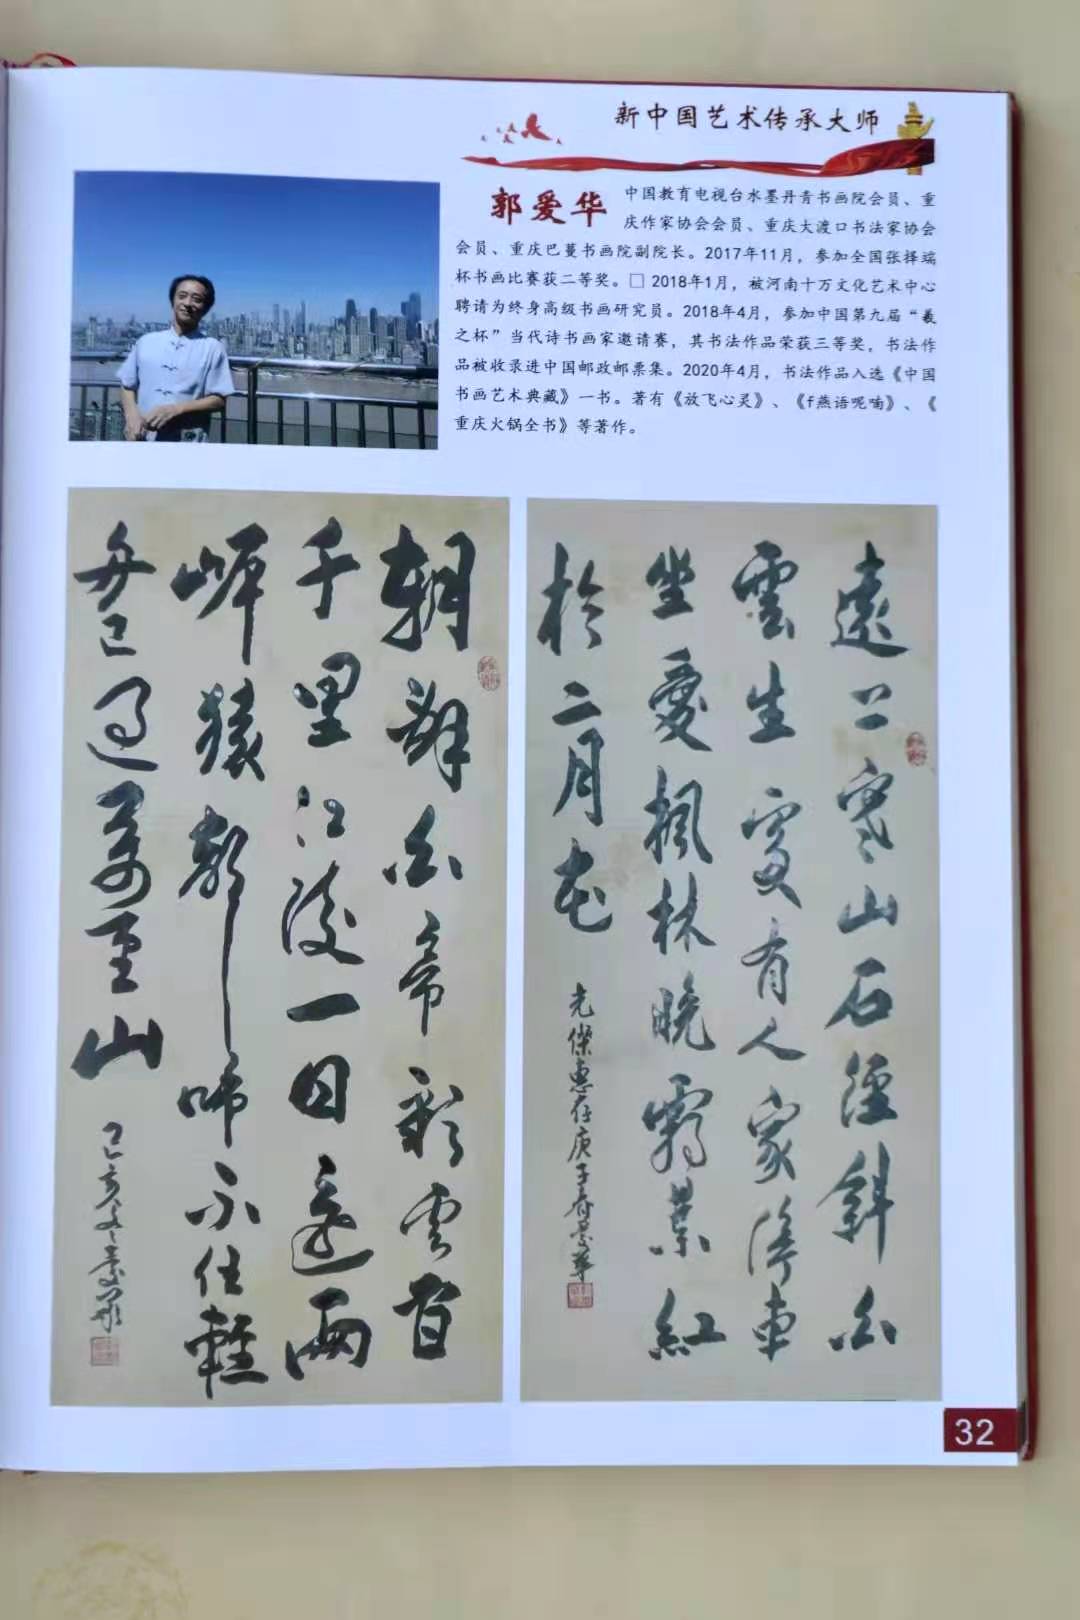 新中国艺术传承大师
郭爱华
中国教育电视台水墨丹青书画院会员、重
庆作家协会会员、重庆大渡口书法家协会
会员、重庆巴蔓书画院副院长。2017年11月，参加全国张择端
杯书画比赛获二等奖。□ 2018年1月，被河南十万文化艺术中心
聘请为终身高级书画研究员。2018年4月，参加中国第九届“羲
之杯”当代诗书画家邀请赛，其书法作品荣获三等奖，书法作
品被收录进中国邮政邮票集。2020年4月，书法作品入选《中国
书画艺术典藏》一书。著有《放飞心灵》、《f燕语呢喃》、《
重庆火锅全书》等著作。
朝辭白帝彩雲間
千里江陵一日還兩
岸猿聲啼不住輕
舟已過萬重山
己亥冬愛華
遠上寒山石徑斜白
雲生處有人家停車
坐愛楓林晚霜葉紅
於二月花
光傑惠存庚子春愛華
32